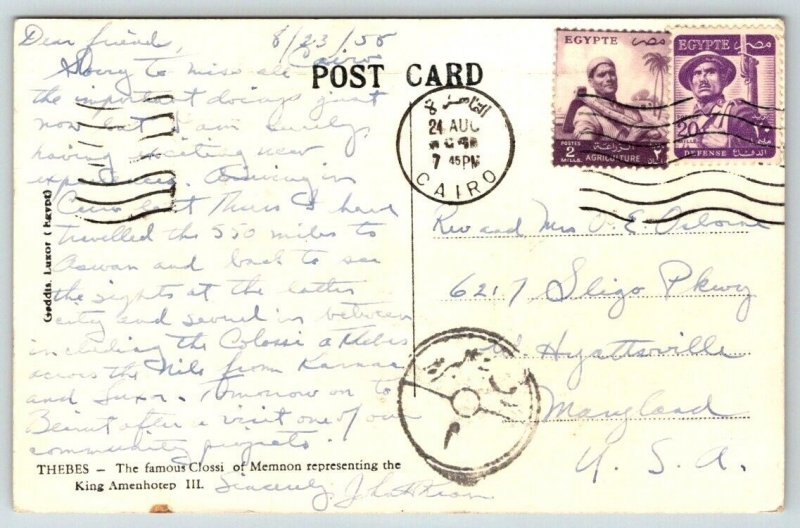 Dear friend, 8/23/55
Cairo
POST CARD
Sorry to miss all
the important doings just
now but I am surely
having exciting new
experiences. Arriving in
Cairo last Thurs I have
travelled the 550 miles to
Aswan and back to see
the sights at the latter
city and several in between
including the Colossi at Thebes
across the Nile from Karnak
and Luxor. Tomorrow on to
Beirut after a visit one of our
community projects.
Sincerely,
THEBES – The famous Clossi of Memnon representing the
King Amenhotep III.
Gaddis, Luxor (Egypt)
EGYPTE مصر
POSTES
2
MILLS
AGRICULTURE
EGYPTE مصر
20
MILLS
DEFENSE
القاهرة
24 AUG
7 45PM
CAIRO
Rev and Mrs O. E. Osborne
6217 Sligo Pkwy
W. Hyattsville
Maryland
U. S. A.